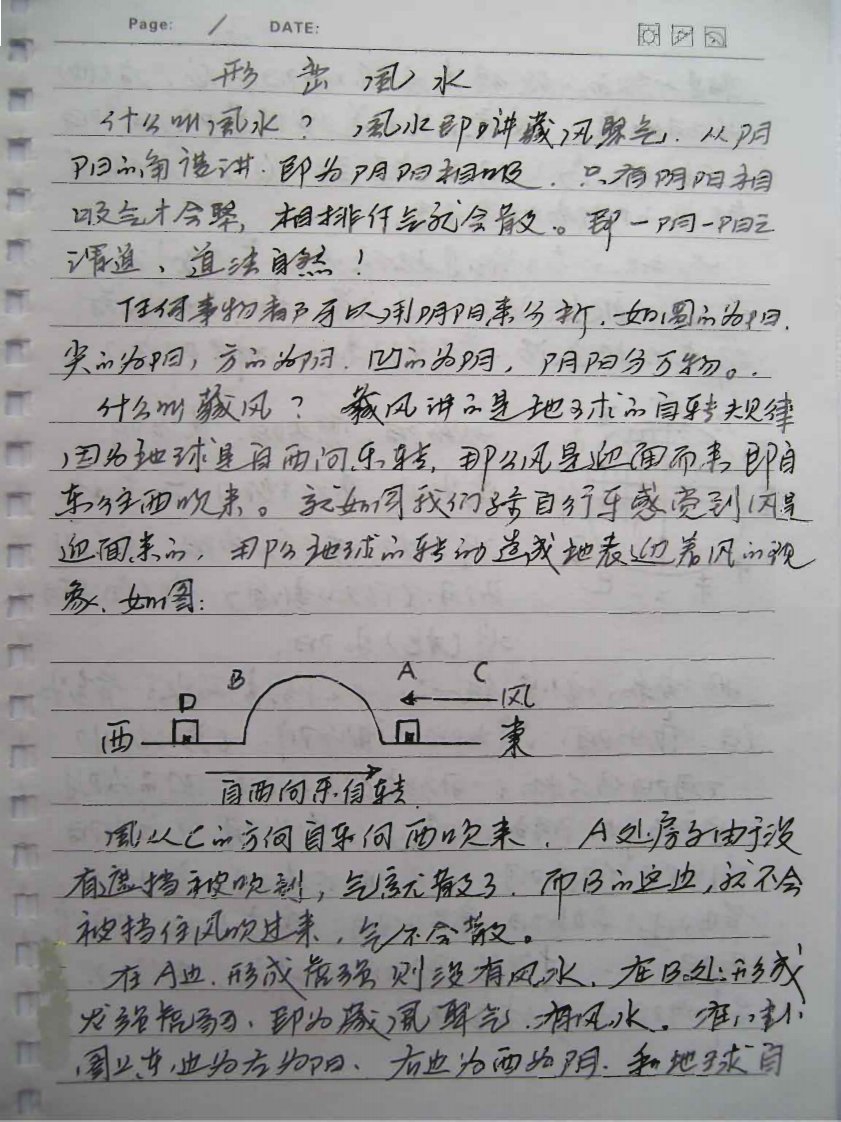 Page: 1 DATE:
形峦风水
什么叫风水？风水即讲藏风聚气．从阴
阳的角度讲．即为阴阳相吸．只有阴阳相
吸气才会聚，相排斥气就会散。即一阴一阳之
谓道、道法自然！
任何事物都可以用阴阳来分析．如圆的为阳．
尖的为阳，方的为阴．凹的为阴，阴阳分万物。
什么叫藏风？藏风讲的是地球的自转规律
因为地球是自西向东转，那么风是迎面而来即自
东往西吹来。就如同我们骑自行车感觉到风是
迎面来的，那么地球的转动造成地表迎着风的现
象．如图：
B A C
D 风
西 東
自西向东自转
风从C的方向自东向西吹来．A处房子由于没
有遮挡被吹到，气就散了．而B的这边，就不会
被挡住风吹过来，气不会散。
在A边．形成 则没有风水．在B处形成
即为藏风聚气．有风水。在八卦
图上东边为左为阳、右边为西为阴．和地球自